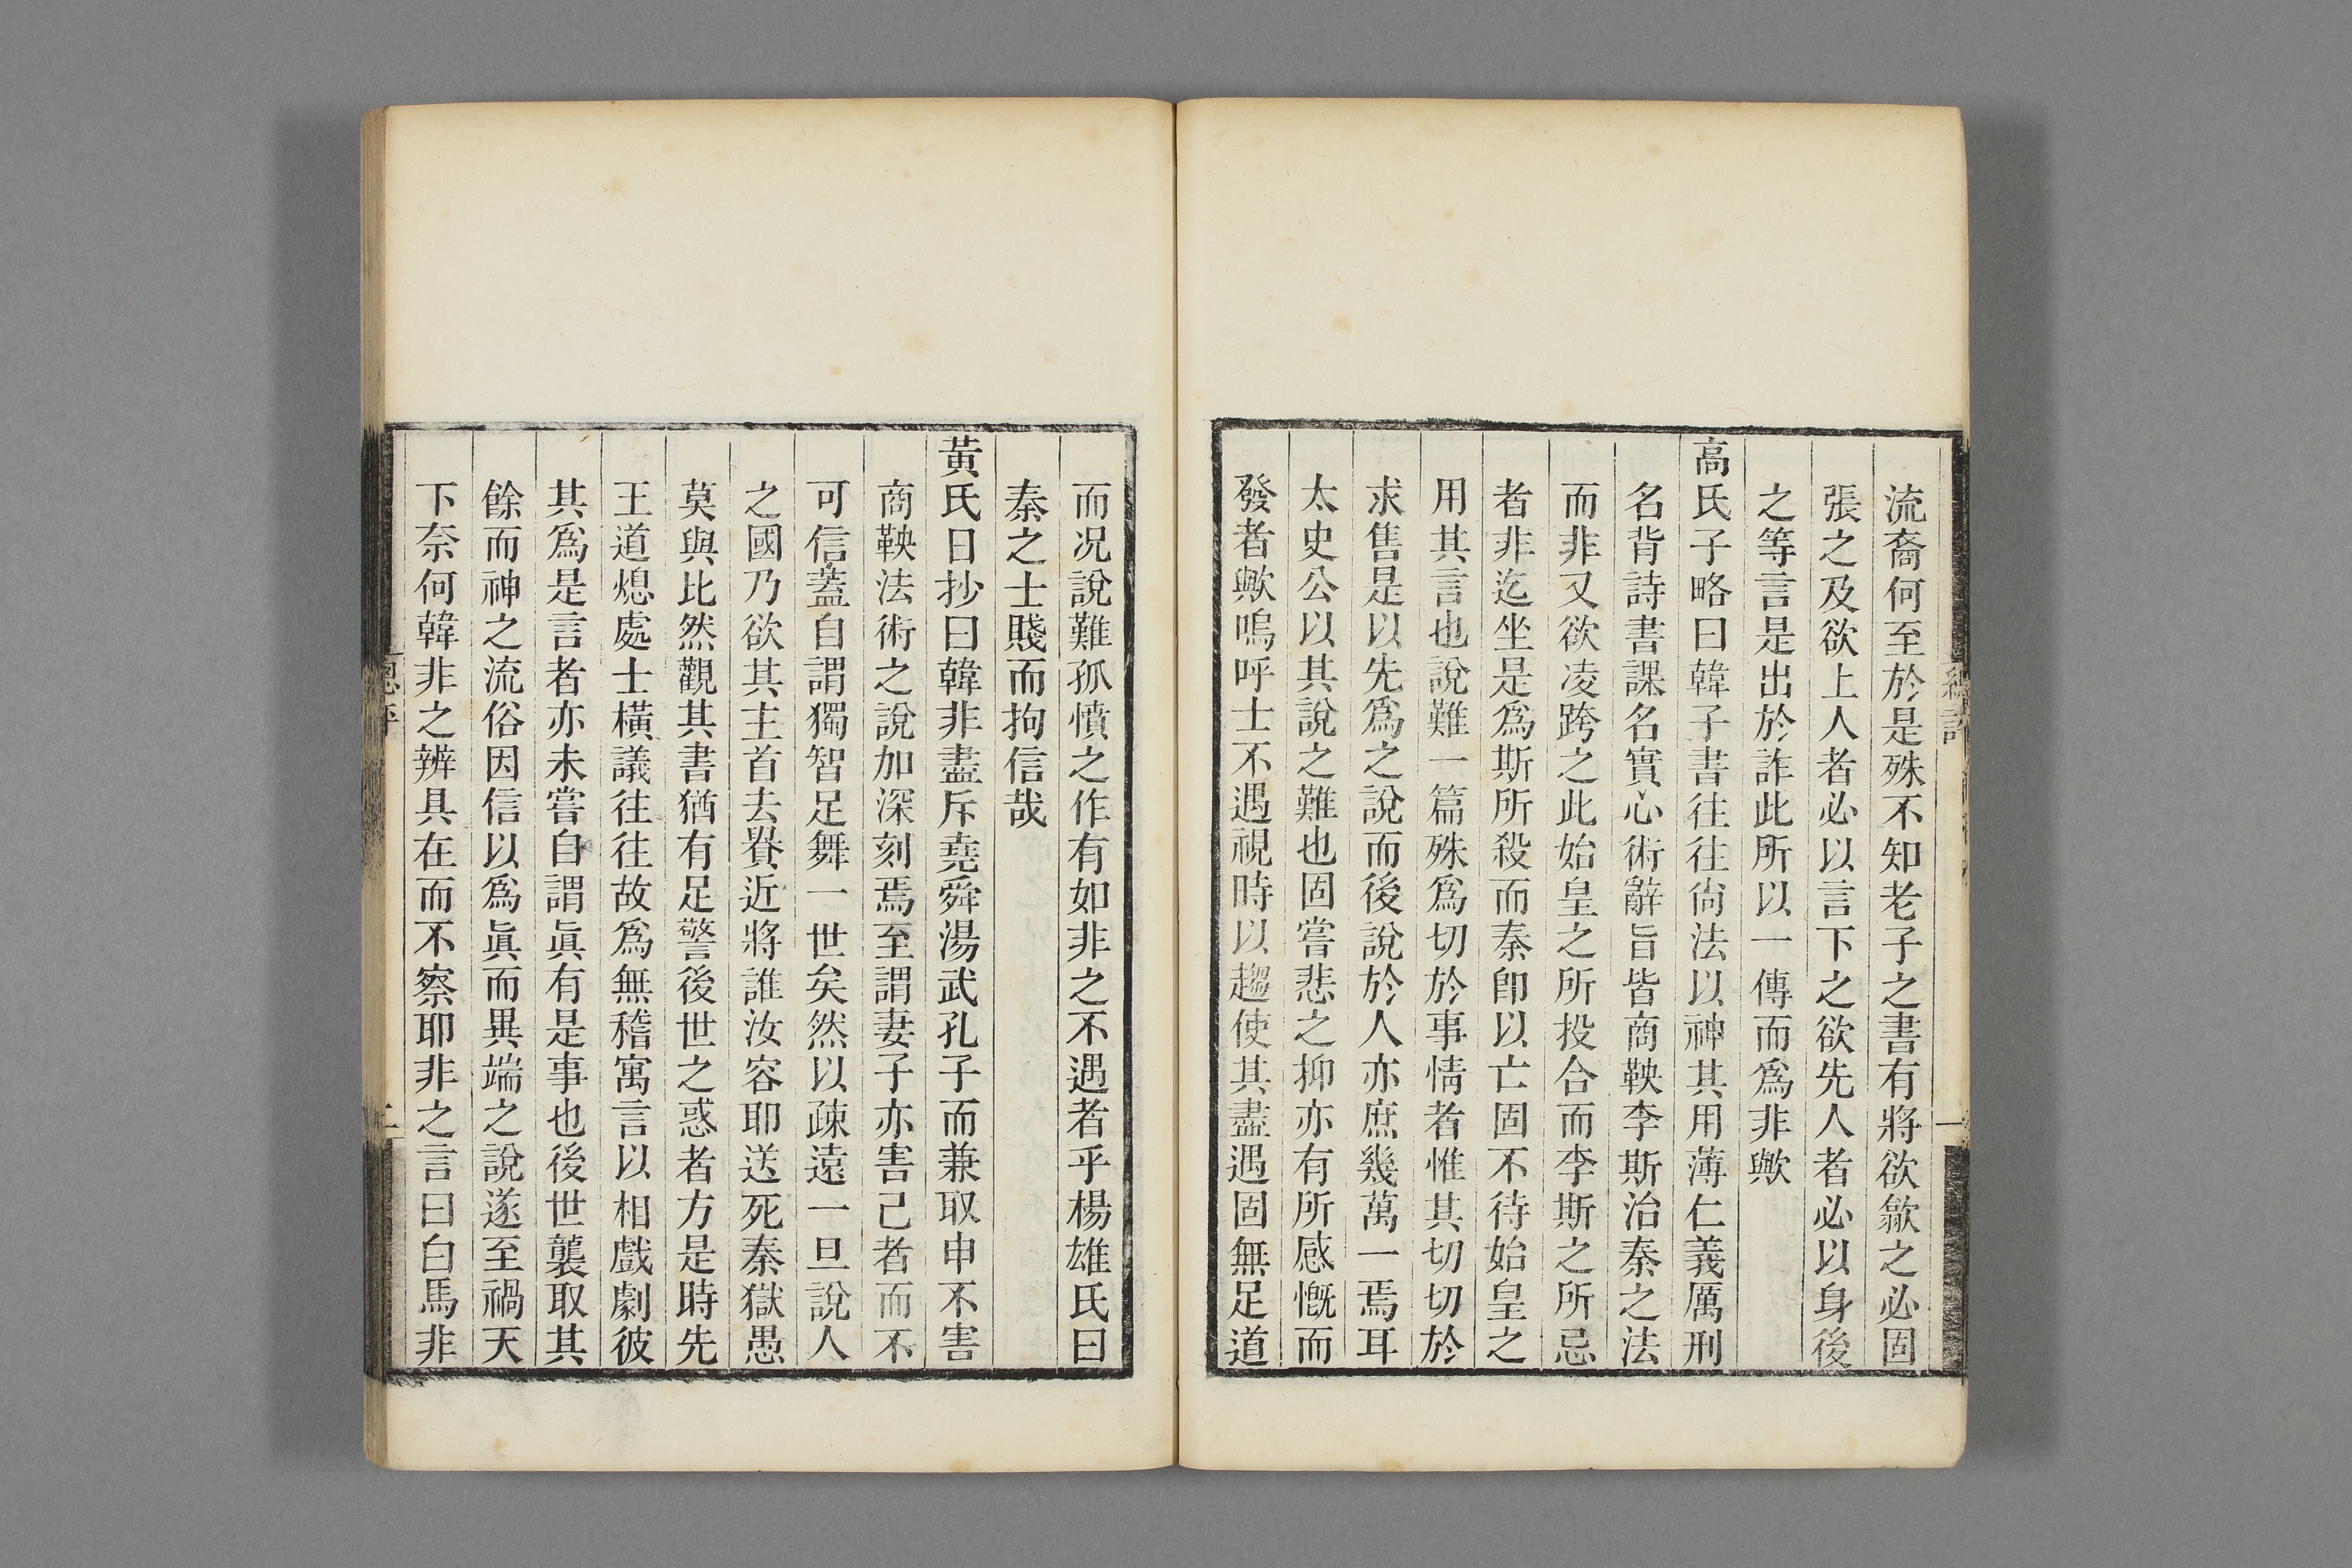 總評
一
流裔何至於是殊不知老子之書有將欲歙之必固
張之及欲上人者必以言下之欲先人者必以身後
之等言是出於詐此所以一傳而爲非歟
高氏子略曰韓子書往往尙法以神其用薄仁義厲刑
名背詩書課名實心術辭旨皆商鞅李斯治秦之法
而非又欲凌跨之此始皇之所投合而李斯之所忌
者非迄坐是爲斯所殺而秦卽以亡固不待始皇之
用其言也說難一篇殊爲切於事情者惟其切切於
求售是以先爲之說而後說於人亦庶幾萬一焉耳
太史公以其說之難也固嘗悲之抑亦有所感慨而
發者歟嗚呼士不遇視時以趨使其盡遇固無足道
而况說難孤憤之作有如非之不遇者乎楊雄氏曰
秦之士賤而拘信哉
黃氏日抄曰韓非盡斥堯舜湯武孔子而兼取申不害
商鞅法術之說加深刻焉至謂妻子亦害己者而不
可信蓋自謂獨智足舞一世矣然以疎遠一旦說人
之國乃欲其主首去貴近將誰汝容耶送死秦獄愚
莫與比然觀其書猶有足警後世之惑者方是時先
王道熄處士橫議往往故爲無稽寓言以相戲劇彼
其爲是言者亦未嘗自謂眞有是事也後世襲取其
餘而神之流俗因信以爲眞而異端之說遂至禍天
下奈何韓非之辨具在而不察耶非之言曰白馬非
總評
二